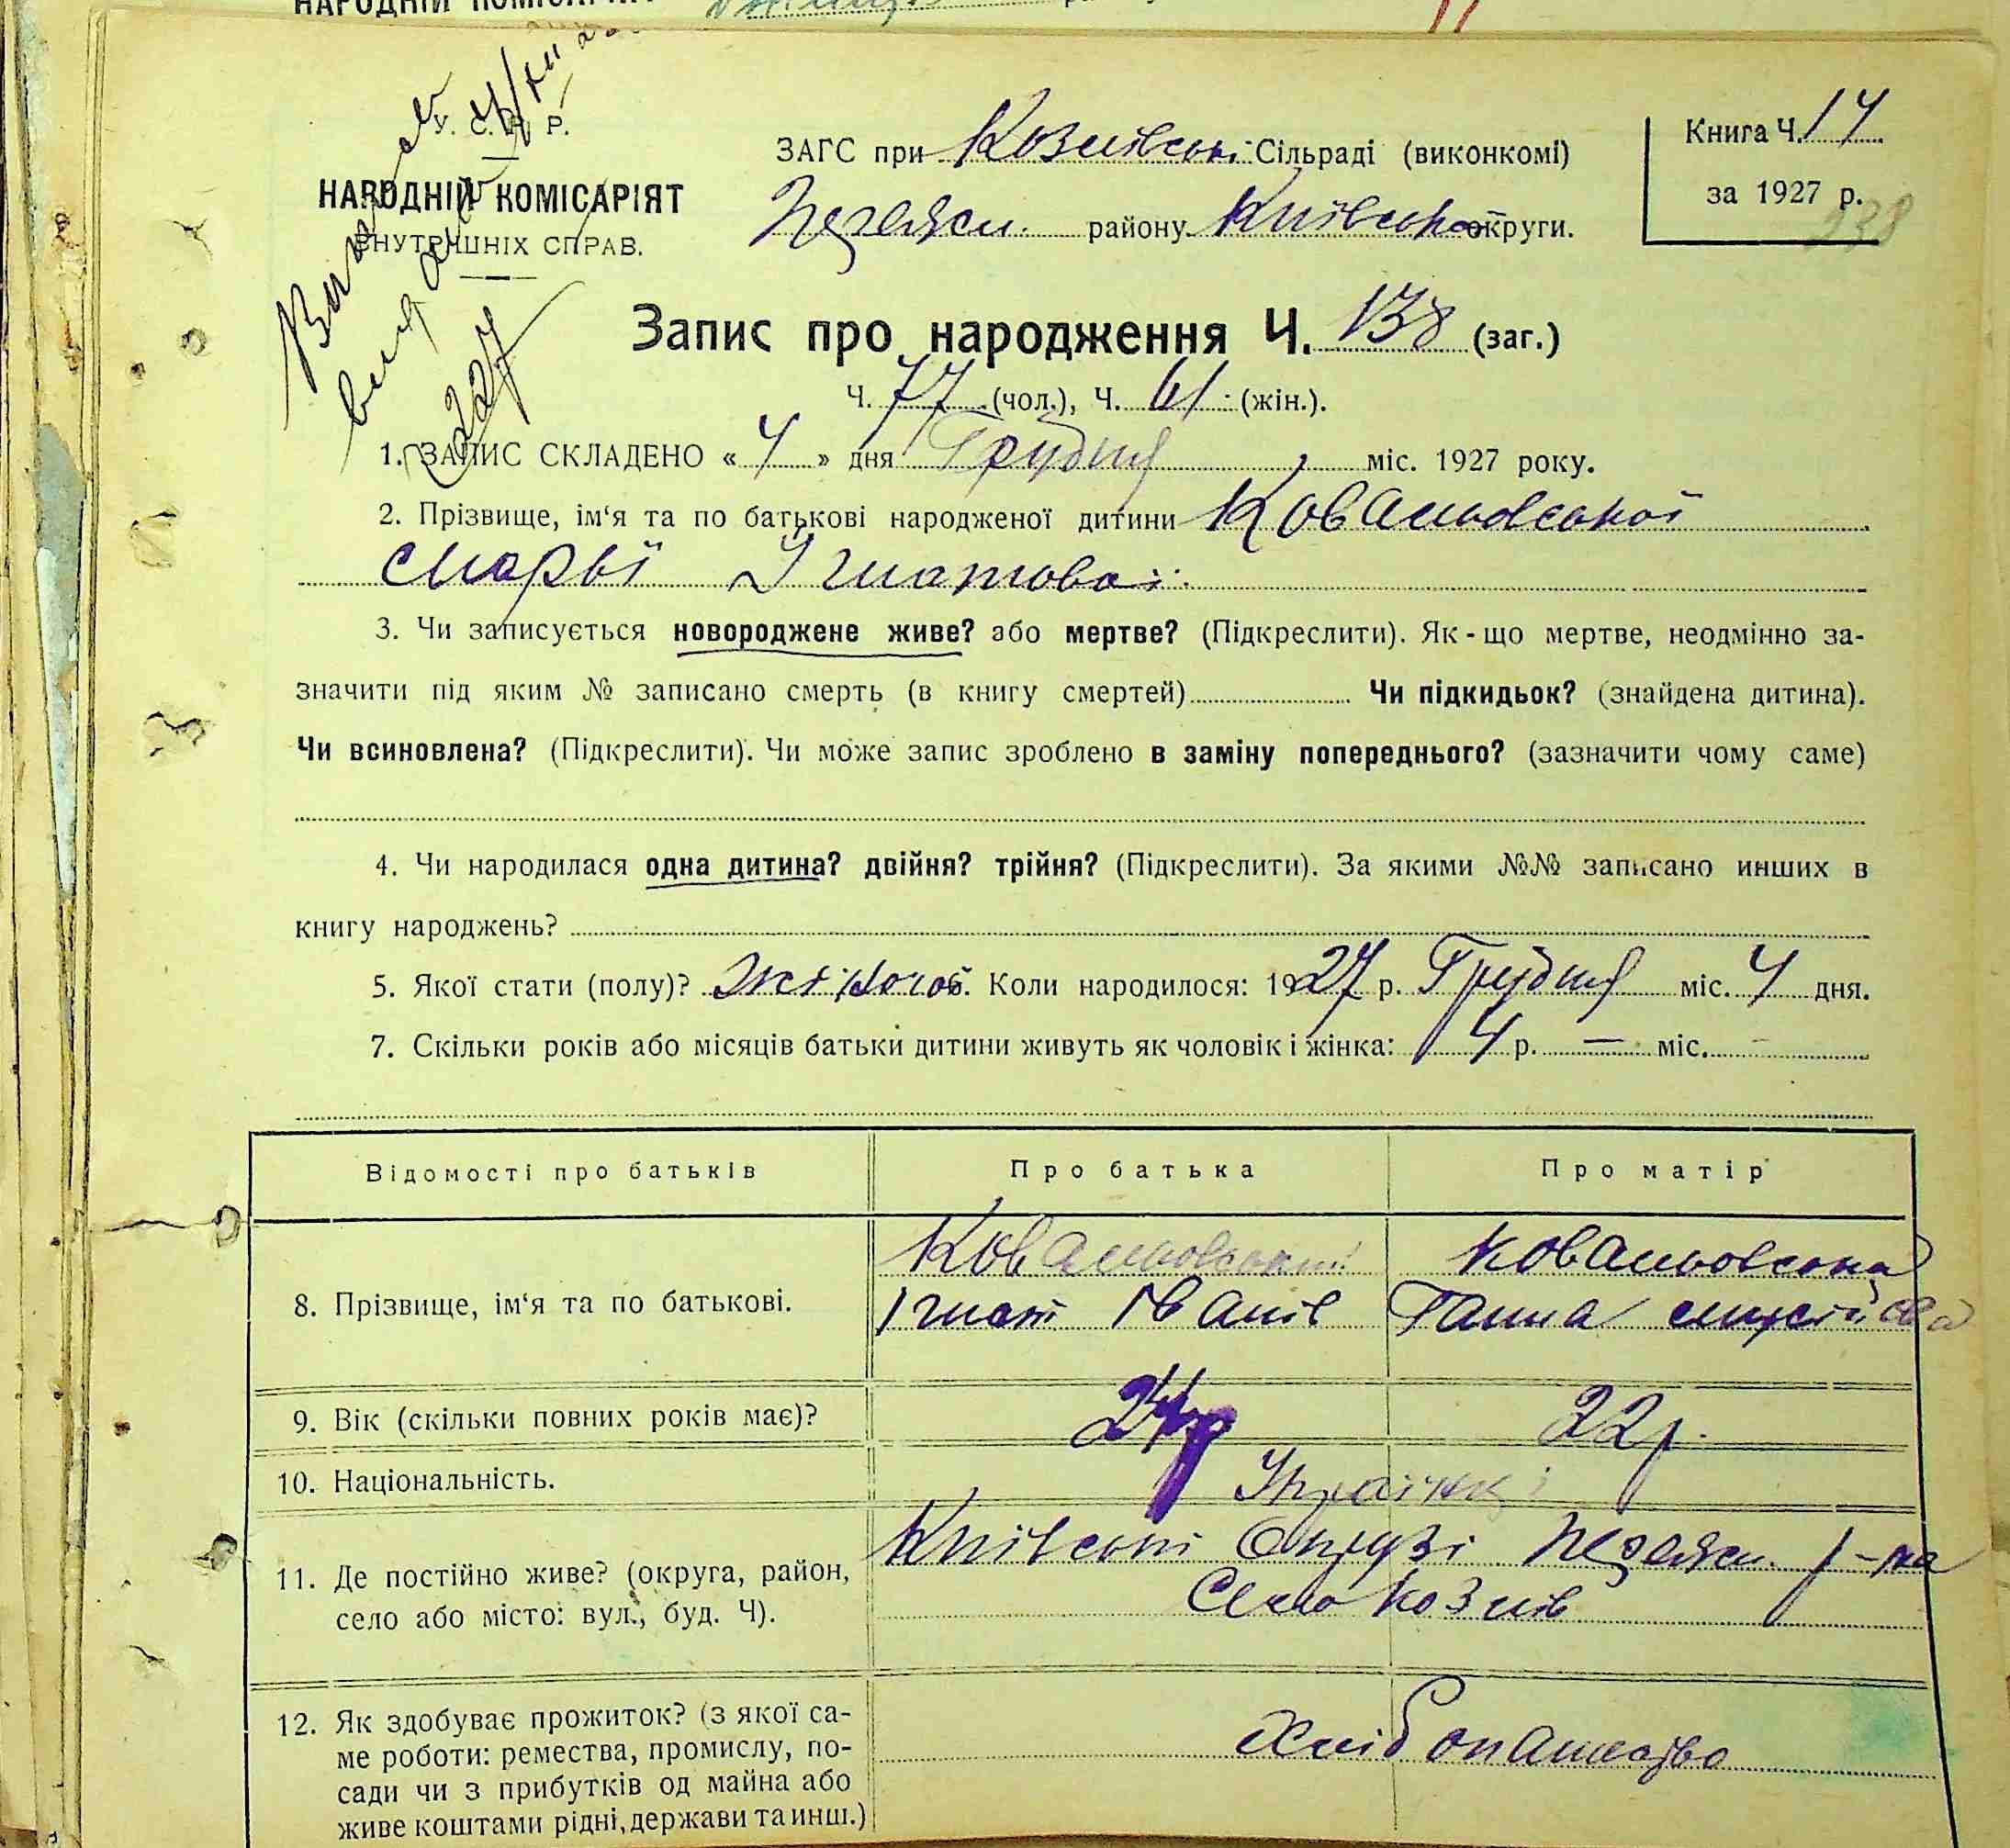 НАРОДНІЙ КОМІСАРІЯТ
У. С. Р. Р.
НАРОДНІЙ КОМІСАРІЯТ
ВНУТРІШНІХ СПРАВ.
327
ЗАГС при Козлівські Сільраді (виконкомі)
району Київської округи.
Книга Ч. 14
за 1927 р.
138
Запис про народження Ч. 138 (заг.)
Ч. 77 (чол.), Ч. 61 (жін.).
1. ЗАПИС СКЛАДЕНО « 4 » дня Грудня міс. 1927 року.
2. Прізвище, ім‘я та по батькові народженої дитини Ковальовської
Марьї Ігнатової
3. Чи записується новороджене живе? або мертве? (Підкреслити). Як-що мертве, неодмінно за-
значити під яким № записано смерть (в книгу смертей) Чи підкидьок? (знайдена дитина).
Чи всиновлена? (Підкреслити). Чи може запис зроблено в заміну попереднього? (зазначити чому саме)
4. Чи народилася одна дитина? двійня? трійня? (Підкреслити). За якими №№ записано инших в
книгу народжень?
5. Якої стати (полу)? жіночої. Коли народилося: 1927 р. Грудня міс. 4 дня.
7. Скільки років або місяців батьки дитини живуть як чоловік і жінка: 4 р. — міс. -
Відомості про батьків Про батька Про матір
8. Прізвище, ім‘я та по батькові.
Ковальовський
Ігнат Іванів
Ковальовська
Ганна
9. Вік (скільки повних років має)? 24р 22р.
10. Національність. Українці
11. Де постійно живе? (округа, район,
село або місто: вул., буд. Ч).
Київські Окрузі р-на
Село Козлів
12. Як здобуває прожиток? (з якої са-
ме роботи: ремества, промислу, по-
сади чи з прибутків од майна або
живе коштами рідні, держави та инш.)
Хліборашество